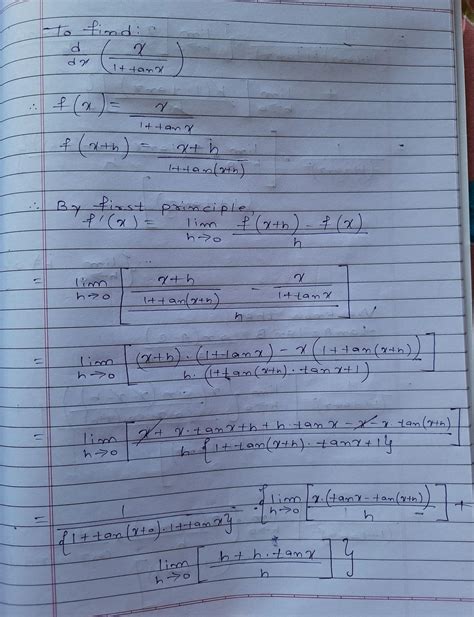 To find:
d/dx (x/(1+tanx))
∴ f(x) = x/(1+tanx)
f(x+h) = (x+h)/(1+tan(x+h))
∴ By first principle
f'(x) = lim h→0 (f(x+h) - f(x))/h
= lim h→0 [((x+h)/(1+tan(x+h)) - x/(1+tanx))/h]
= lim h→0 [((x+h)·(1+tanx) - x(1+tan(x+h)))/(h·(1+tan(x+h)·tanx+1)]
= lim h→0 [(x + x·tanx + h + h·tanx - x - x tan(x+h))/(h·{1+tan(x+h)·tanx+1})]
= 1/{1+tan(x+0)·1+tanx} · {lim h→0 [x·(tanx-tan(x+h))/h] +
lim h→0 [(h+h·tanx)/h]}